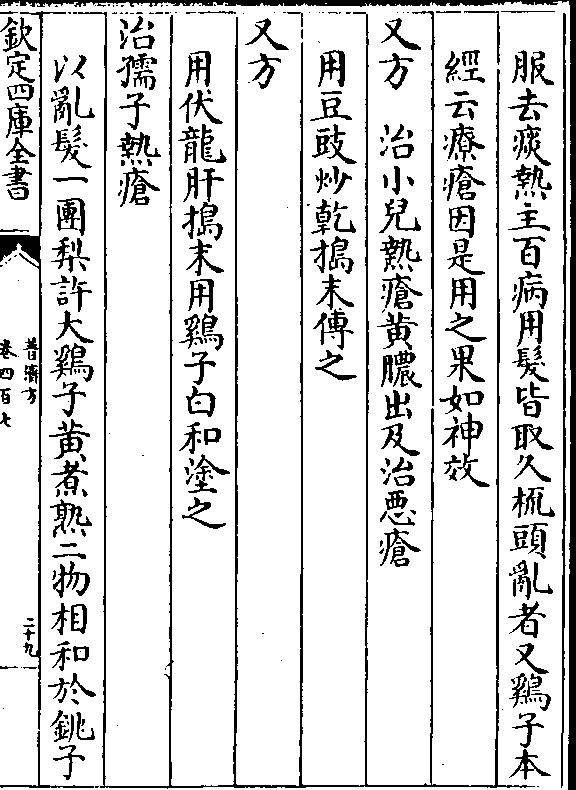 服去痰熱主百病用髮皆取久梳頭亂者又鷄子本
經云療瘡因是用之果如神效
又方　治小兒熱瘡黄膿出及治惡瘡
用豆豉炒乾搗末傅之
又方
用伏龍肝搗末用鷄子白和塗之
治孺子熱瘡
以亂髮一團梨許大鷄子黄煮熟二物相和於銚子
欽定四庫全書
普濟方
卷四百七
二十九